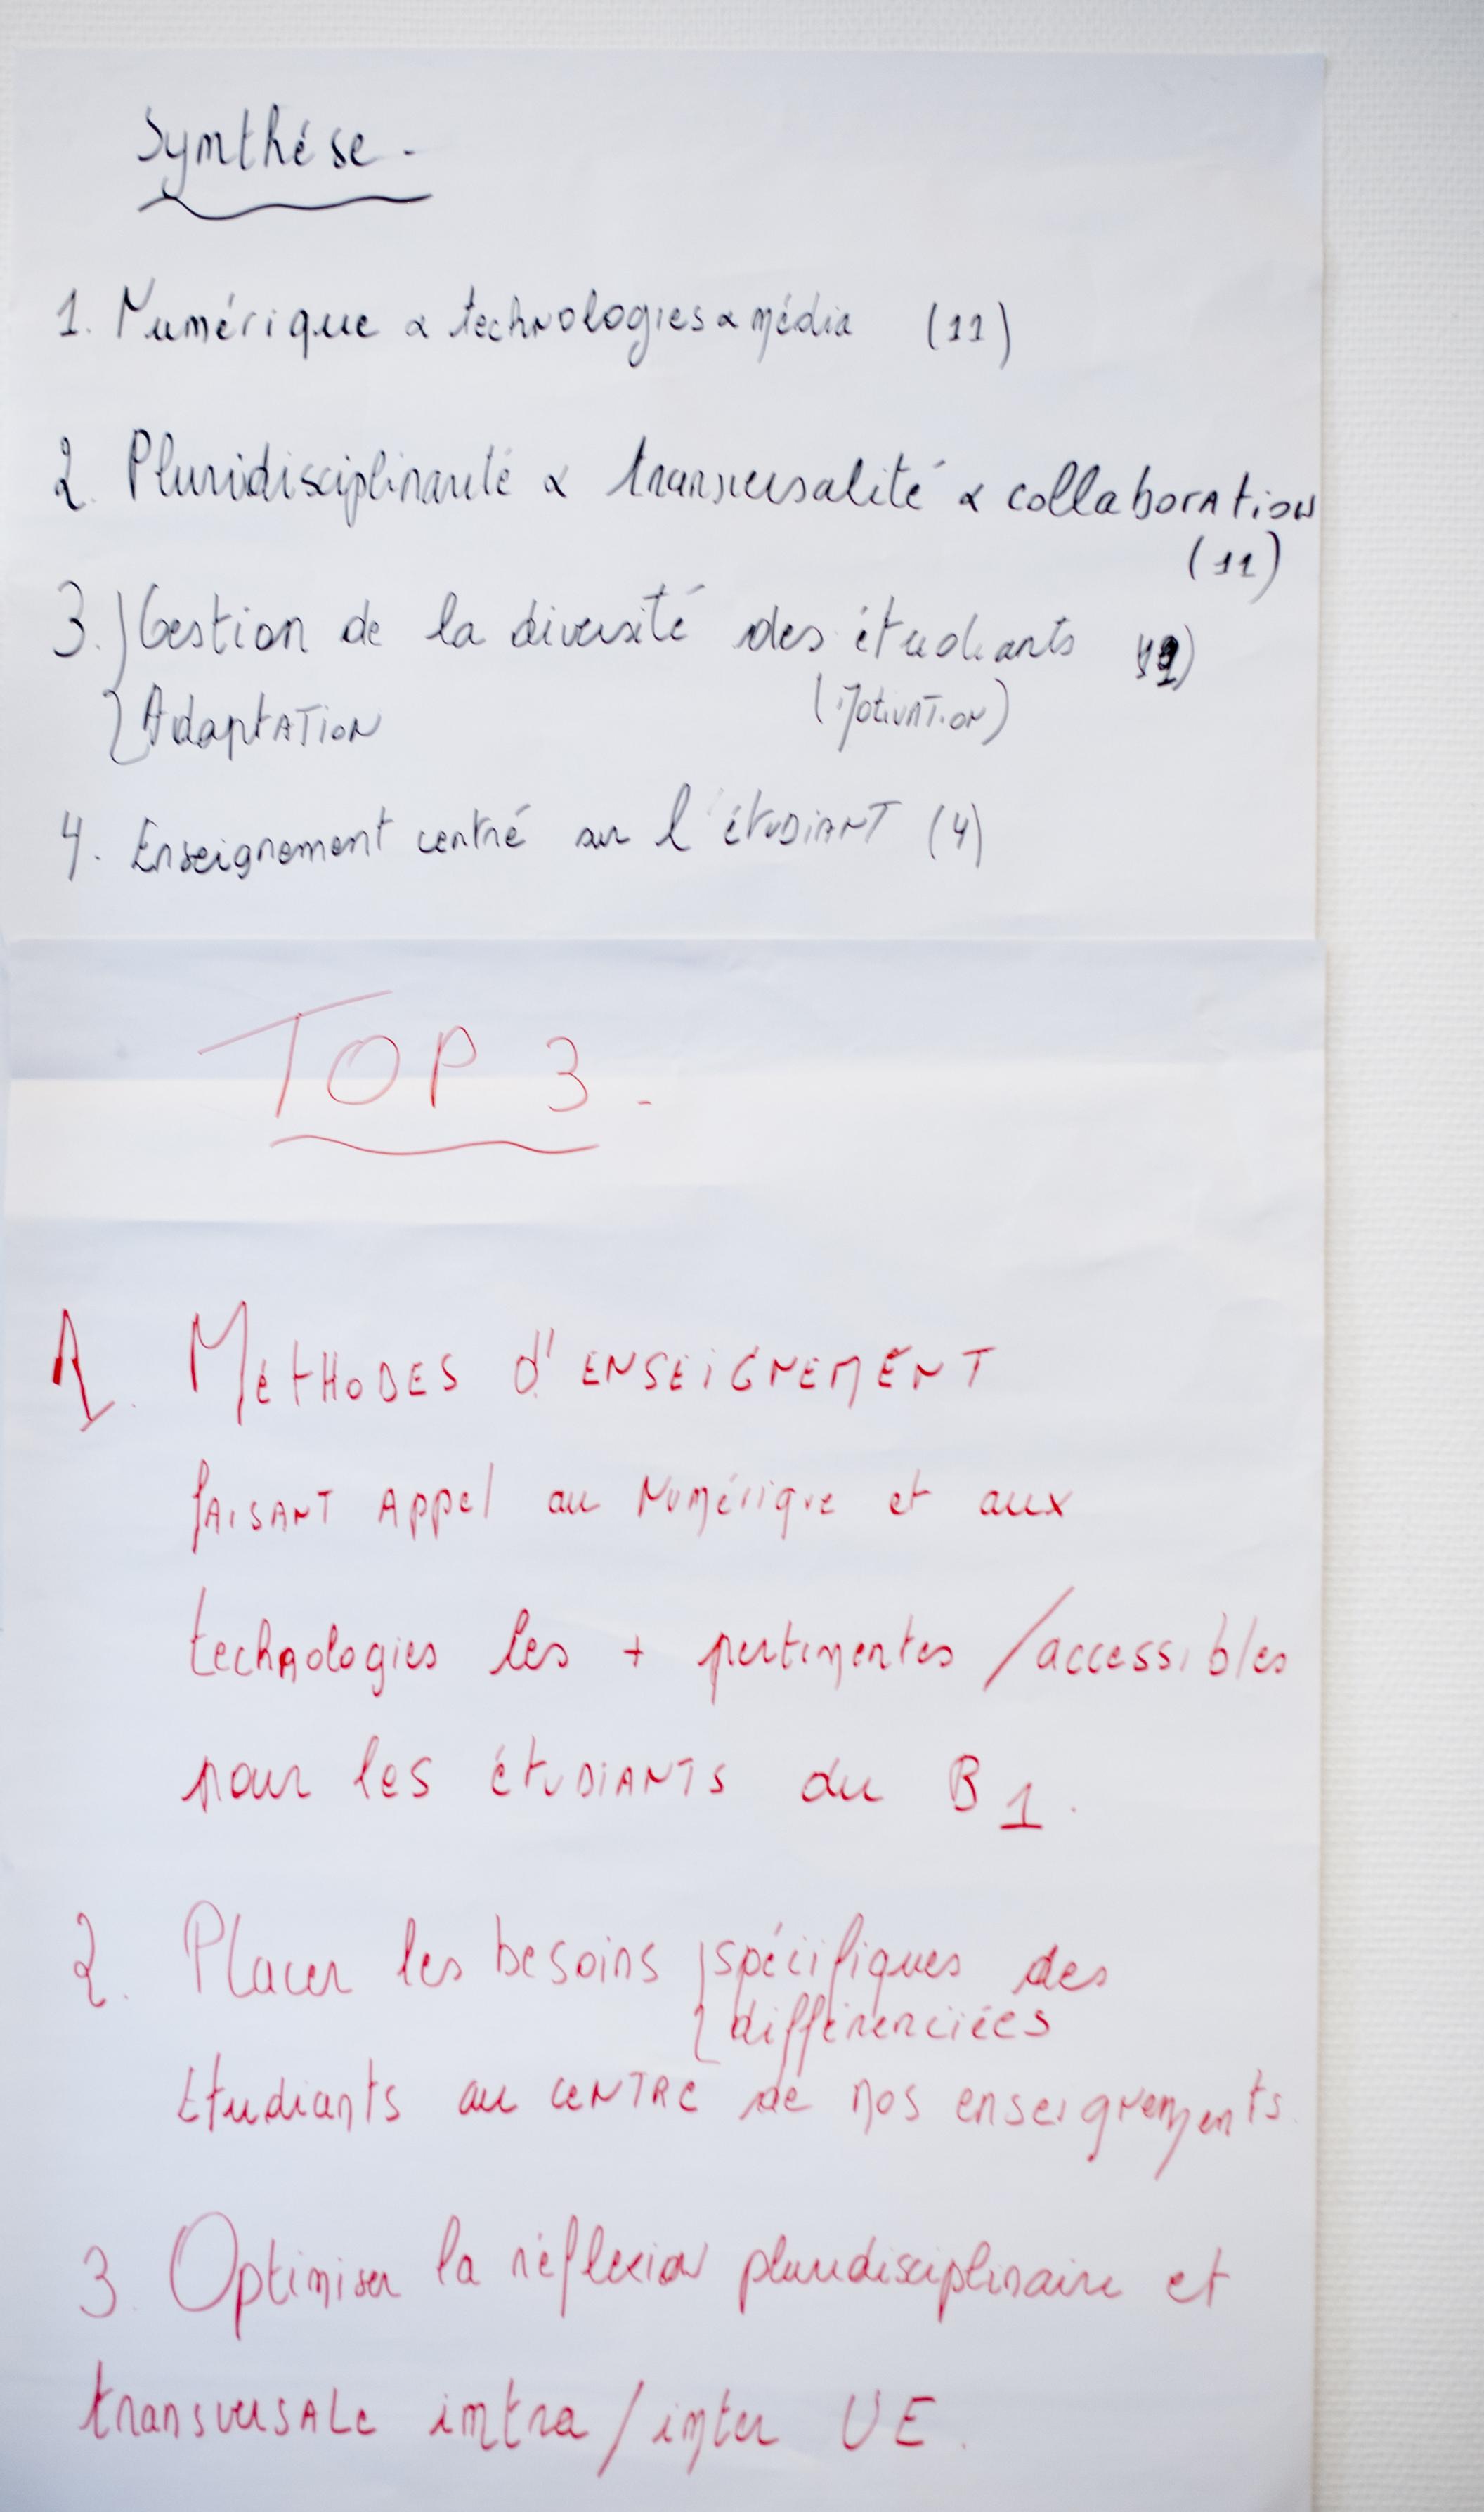 Synthése -
1. Numérique & technologies & média (11)
2. Pluridisciplinarité & transversalité & collaboration
(11)
3. Gestion de la diversité des étudiants
Adaptation (Motivation)
4. Enseignement centré sur l'étudiant (4)
TOP 3 -
1. Méthodes d'enseignement
faisant appel au numérique et aux
technologies les + pertinentes / accessibles
pour les étudiants du B1.
2. Placer les besoins spécifiques des
différenciées
Etudiants au centre de nos enseignements.
3. Optimiser la réflexion pluridisciplinaire et
transversale intra / inter UE.